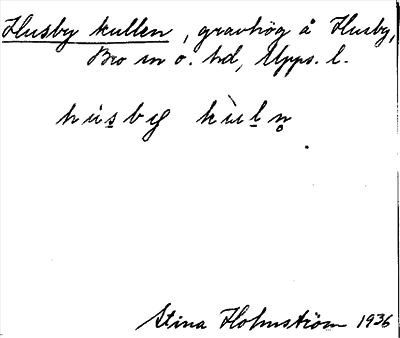 Husby kullen, gravhög å Husby,
Bro sn o. hd, Upps. l.
húsby kùln̥.
Stina Holmström 1936